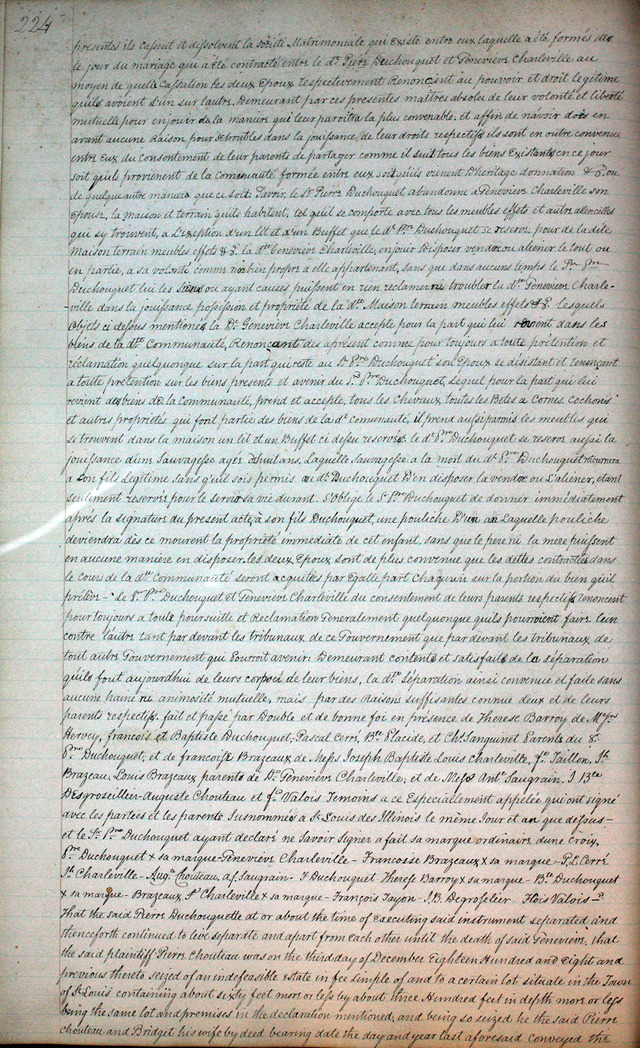 224
presentes ils cassent et dissolvent la societé Matrimoniale qui existe entre eux laquelle a été formés dès
le jour du mariage qui a été contracté entre le dt. Piere Duchouquet et Genevieve Charleville au
moyen de quelle Cassation les deux Epoux respectivement Renoncent au pouvoir et droit legitime
quils avoient d'un sur l'autre. Demeurant par ces presentes maîtres absolu de leur volonté et liberté
mutuelle pour en jouir de la manure qui leur paroîtra la plus convenable. et affin de n'avoir dores en
avant aucune Raison pour se troubles dans la jouissance, de leur droits respectifs ils sont en outre convenue
entre Eux du consentement de leur parents de partager comme il suit tous les biens Existants en ce jour
soit qu'ils provienent de la comunauté formée entre eux soit quils vienent D'heritage donnation & &. ou
de quelqu autre manure que ce soit. Savoir, le Sr. Pierre Duchouquet abandonne a Genevieve Charleville son
Epouse, la maison et terrain quils habitent, tel quil se comporte avec tous les meubles effets et autre utencilles
qui sy trouvent, a L'exeption d'un lit et d'un Buffet que le dt. Prre Duchouquet se reserve pour de la dite
Maison terrain meubles effets & &. la dte. Genevieve Charleville, enjouir Disposer vendre ou aliener le tout ou
en partie, a sa volonté comme un bien propre a elle appartenant, Sans que dans aucuns temps le Sr. Prre
Duchouquet lui les Siens ou ayant causes puissent en rien reclamer ni troubler la dte. Genevieve Charle-
ville dans la jouissance possession et propriété de la dte. Maison terrain meubles effets & &. lesquels
Objets ci dessus mentionés la De. Genevieve Charleville accepte pour la part qui lui revient dans les
biens de la dte. Communauté, Renonçant dès apresent comme pour toujours a toute prétention et
réclamation quelquonque sur la part qui reste au Sr. Prre. Duchouquet son Epoux se désistant et renonçant
a toute pretention sur les biens presents et avenir du Sd. Prre Duchouquet, lequel pour la part qui lui
revient des biens de la Communauté, prend et accepte, tous les Chevaux toutes les Betes a Cornes, Cochons
et autres propriétés qui font partie des biens de la dt. comunauté, il prend aussi parmis les meubles qui
se trouvent dans la maison un lit et d'un Buffet ci dessu reservés. le dt. Prre Duchouquet se reserve aussi la
jouissance d'une Sauvagesse agée d'huit ans, Laquelle Sauvagesse a la mort du dt. Prre Duchouquet retournera
a son fils Legitime Sans qu'il sois permis au dt. Duchouquet D'en disposer la vendre ou L'aliener, etant
seulement reservée pour le servir sa vie durant. S'oblige le Sr. Prre Duchouquet de donner immédiatement
après la signature du present acte, à son fils Duchouquet, une pouliche D'un an Laquelle pouliche
deviendra dès ce mourent la propriété immediate de cet enfant, sans que le pere ni la mere puissent
en aucune manière en disposer. les deux Epoux sont de plus convenue que les dettes contractés dans
le cours de la dte. Communauté seront acquitées par Egalle part chaqu'un sur la portion du bien quil
préleve - Le Sr. Prre Duchouquet et Genevieve Charleville du consentement de leurs parents respectifs renoncent
pour toujours a toute poursuitte et Reclamation Generalement quelquonque quils pourroient faire l'un
contre l'autre tant par devant les tribunaux de ce Gouvernement que par devant les tribunaux de
tout autre Gouvernement qui Pourroit avenir. Demeurant contents et satisfaits de la séparation
qu'ils font aujourdhui de leurs corps et de leur biens, la dte. Séparation ainsi convenue et faite sans
aucune haine ni animosité mutuelle, mais par des Raisons suffisantes connue deux et de leurs
parents respectifs. fait et passé par Double et de bonne foi en presence de Therese Barroy de
Hervey, francois et Baptiste Duchouquet, Pascal Cerré, Bte. Elside, et Ch. Sanguinet Parents du Sr.
Prre Duchouquet; et de francoise Brazeaux de Mess Joseph Baptiste Louis charleville, fr. Taillon, Jh.
Brazeau, Louis Brazeaux parents de De. Genevieve Charleville; et de Mess Ant. Saugrain, J Bte
Desgroseiller Auguste Chouteau et fs. Valois Temoins a ce Especialement appelée qui ont signé
avec les parties et les parents Susnommés a St. Louis des Illinois le même Jour et an que dessus -
et le Sr. Prre Duchouquet ayant declaré ne Savoir Signer a fait sa marque ordinaire dune Croix,
Prre Duchouquet x sa marque - Genevieve Charleville - Francosse Brazeaux x sa marque - P.L. Cerré
Jh. Charleville - Augt. Chouteau, a.f. Saugrain - F Duchouquet Therese Barroy x sa marque - Bt. Duchouquet
x sa marque - Brazeaux Jh Charleville x sa marque - François Tayon - J.B. Degroselier - Flois Valois -
That the said Pierre Duchouguette at or about the time of Executing said instrument separated and
thenceforth continued to live separate and apart from each other until the death of said Genevieve, that
the said plaintiff Pierre Chouteau was on the third day of December Eighteen Hundred and eight and
previous thereto seized of an indefeasible estate in fee simple of and to a certain lot situate in the Town
of St. Louis containing about sixty feet more or less by about three Hundred feet in depth more or less
being the same lot and premises in the declaration mentioned, and being so seized he the said Pierre
chouteau and Bridget his wife by deed bearing date the day and year last aforesaid conveyed the